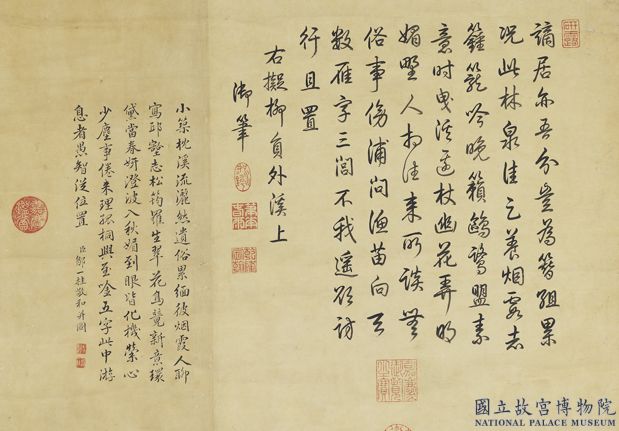 謫居亦吾分豈為簪組累
况此林泉佳足養烟霞志
籦籠吟晚籟鷗鷺盟素
意時曳溪邊杖幽花弄明
媚野人相往來所談無
俗事傍浦問漁苗向天
數雁字三閭不我遙欲訪
行且置
右擬柳員外溪上
御筆
小築枕溪流灑然遺俗累緬彼烟霞人聊
寫邱壑志松筠生翠花鳥覺新意環
黛當春妍澄波入秋媚到眼皆化機縈心
少塵事倦來理孤桐興至塗五字此中游
息者愚智從位置
臣鄒一桂敬和并圖
國立故宮博物院
NATIONAL PALACE MUSEUM